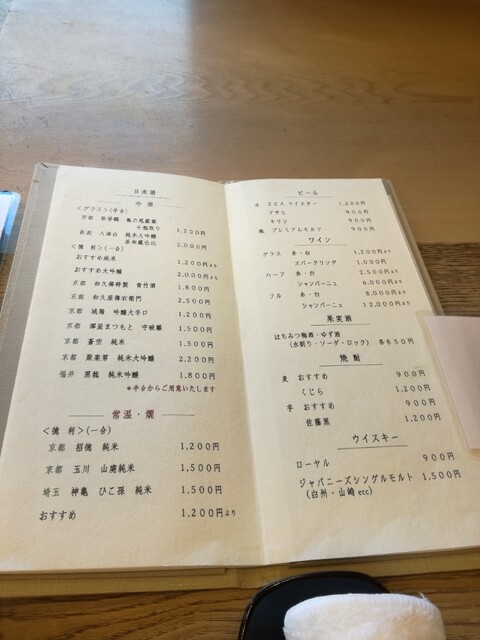 日本酒
冷酒
＜グラス＞(半合)
京都
亀の尾蔵舞
1,200円
純米大吟醸
2,000円
＜徳利＞(一合)
おすすめ純米 1,200円より
おすすめ大吟醸 2,000円より
京都 和久傳特製 青竹酒 1,800円
京都 和久屋傳右衛門 2,500円
京都 城陽 吟醸大辛口 1,200円
京都 澤屋まつもと 守破離 1,500円
京都 蒼空 純米 1,500円
京都 聚楽第 純米大吟醸 2,200円
福井 黒龍 純米吟醸 1,800円
＊半合からご用意いたします
常温・燗
＜徳利＞(一合)
京都 招徳 純米 1,200円
京都 玉川 山廃純米 1,500円
埼玉 神亀 ひこ孫 純米 1,500円
おすすめ 1,200円より
ビール
生 ヱビス マイスター 1,200円
アサヒ 900円
キリン 900円
瓶 プレミアムモルツ 900円
ワイン
グラス 赤・白 1,200円
スパークリング 1,000円
ハーフ 赤・白 2,500円より
シャンパーニュ 6,000円より
フル 赤・白 8,000円より
シャンパーニュ 12,000円より
果実酒
はちみつ梅酒・ゆず酒
(水割り・ソーダ・ロック) 各850円
焼酎
麦 おすすめ 900円
くじら 1,200円
芋 おすすめ 900円
佐藤黒 1,200円
ウイスキー
ローヤル 900円
ジャパニーズシングルモルト 1,500円
(白州・山崎 etc)